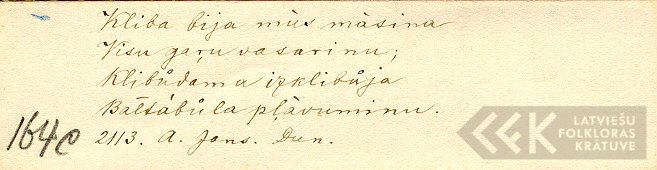 Kliba bija mūs māsina
Visu gaŗu vasarinu;
Klibůdama izklibůja
Baltábůla pļàvuminu.
164c 2113. A. Jans. Dun.
LATVIEŠU
FOLKLORAS
KRĀTUVE